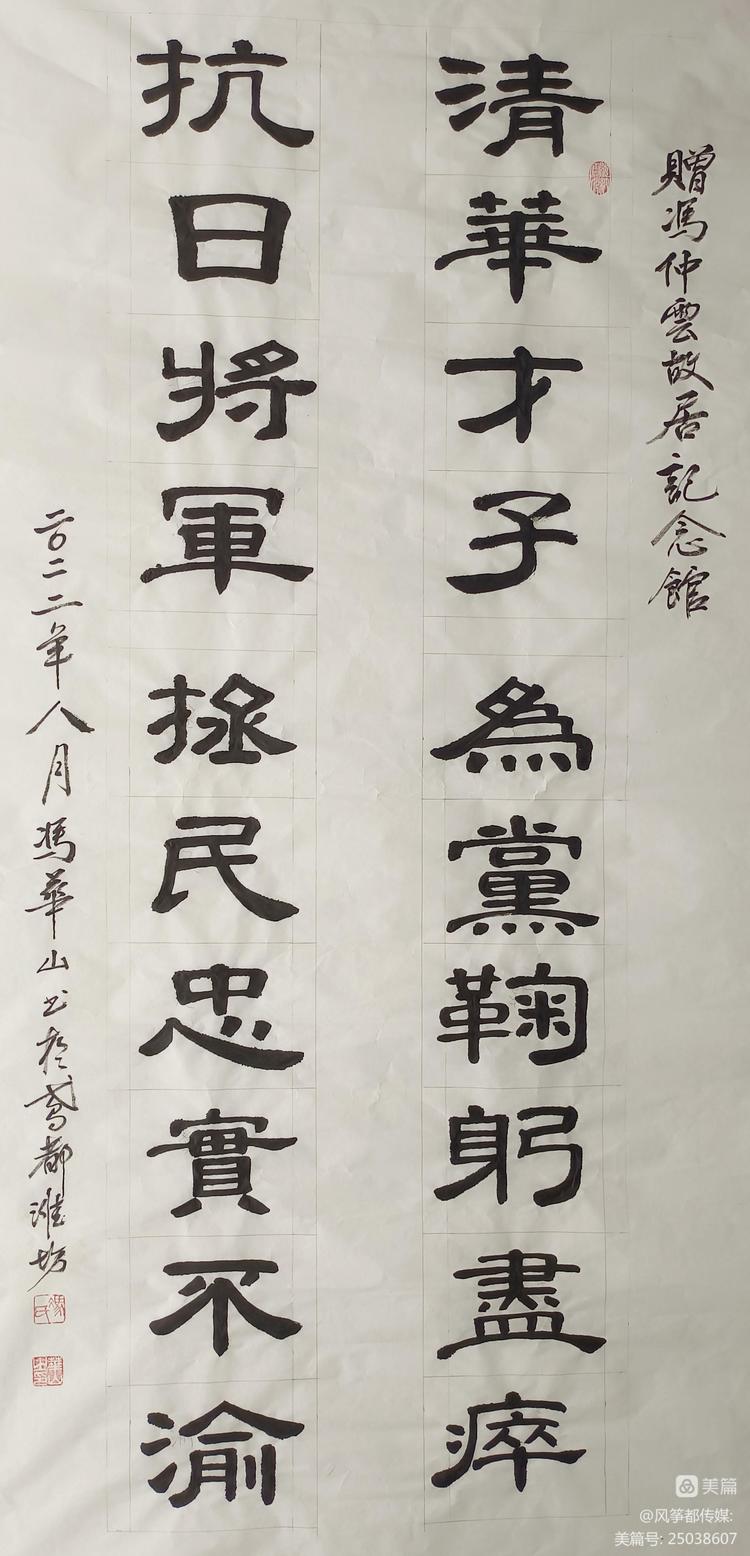 贈馮仲雲故居記念館
清華才子為黨鞠躬盡瘁
抗日將軍拯民忠實不渝
二〇二二年八月馮華山书於鳶都濰坊
美篇
@风筝都传媒:
美篇号: 25038607